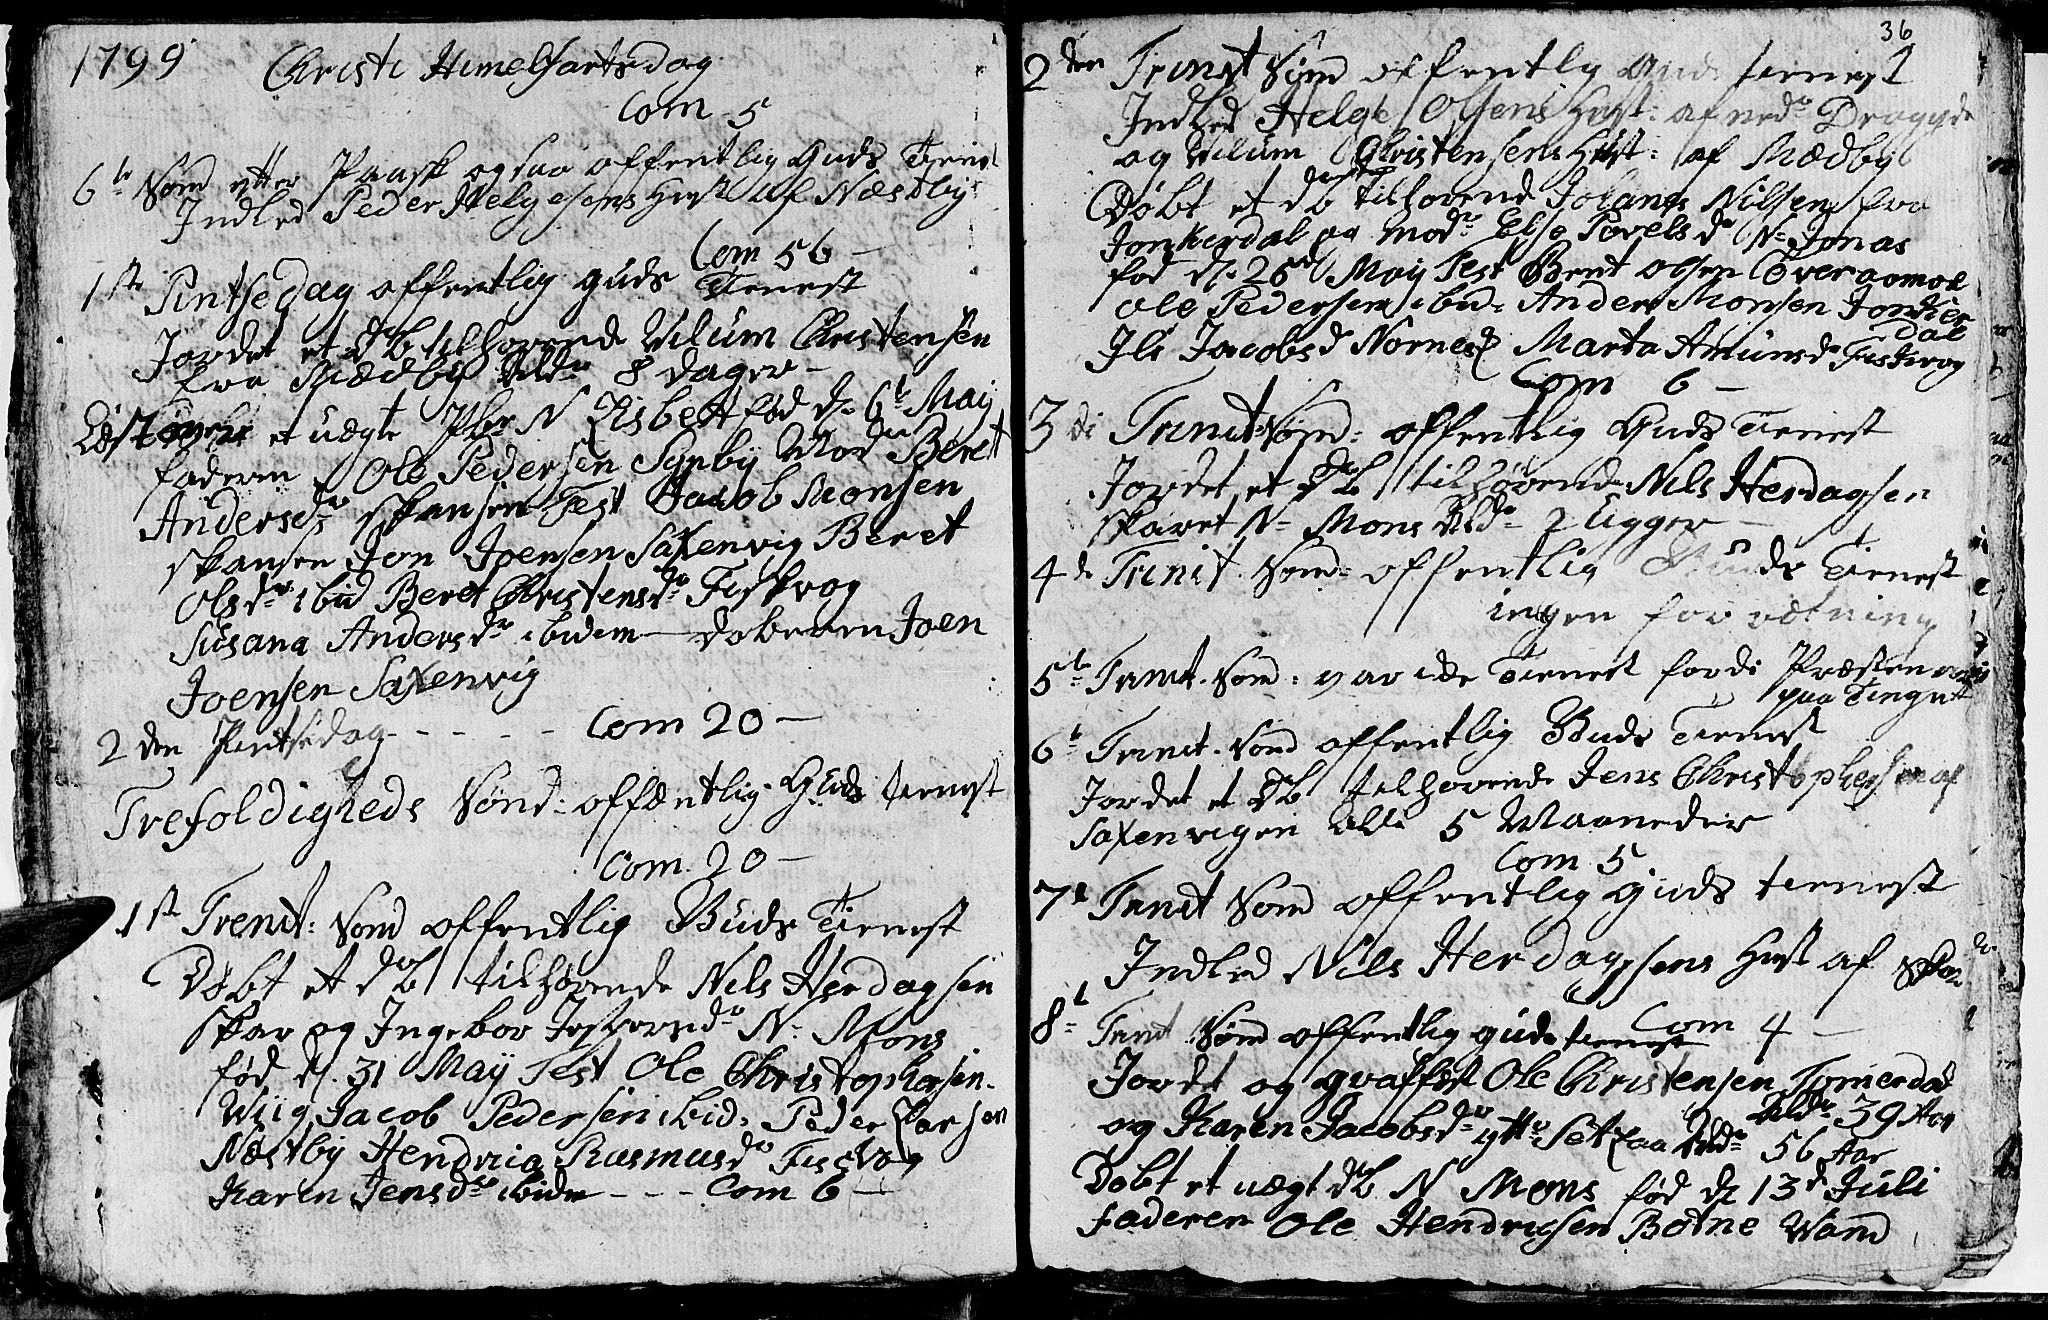 1799 Christi Himelfartsdag
Com 5
6te Sønd etter Paask ogsaa offentlig Guds Tienst
Indled Peder Helgesens Hust af Næstby
Com 56 —
1ste Pintsedag offentlig guds Tienest
Jordet et db tilhørende Vilum Christensen
fra Mædby Ald. 8 dager —
et uægte Pbr N Elsbett fød d. 6te May
faderen Ole Pedersen Synbÿ Mod. Berett
Andersdr Skansen Test Jacob Monsen
Skansen Jon Joensen Saxenvig Beret
Olsdr ibid Beret Christensdr Fiskvog
Susana Andersdr ibidem — døberen Joen
Joensen Saxenvig
2den Pintsedag - - - - - Com 20 —
Trefoldigheds Sønd: offæntlig Guds tienest
Com. 20 —
1st Trenit: Sønd offentlig Guds Tienest
Døbt et db tilhørende Nils Herdagsen
Skar og Ingebor Jespersdr N: Mons
fød d. 31 Maÿ Test Ole Christophersen
Wiig Jacob Pedersen ibid: Peder Larsen
Næstby Hendrica Rasmusdr Fiscvog
Karen Jensdr ibidm - - - Com 6 —
36
2den Trinit Sønd offentlig Guds tienest
Indled Helge Olsens Hust: af
og Vilum Christensens Hust: af Mædby
Døbt et db tilhørend Johanes Nilsen fra
Jonkerdal og Modr Else Povelsdr N: Jonas
fød d. 26de Maÿ Test Brent Olsen Øveraamoe
Ole Pedersen ibid: Anders Monsen Jonker
dal
Ils Jacobsd Nornes Marta Amunsdr Fiskvog
Com 6 —
3di Trinit Sønd: offentlig Guds Tienest
Jordet et db tilhørende Nils Herdagsen
Skaret N: Mons Ald. 2 Ugger —
4de Trinit. Sønd: offentlig Guds Tienest
ingen forrætning
5te Trinit. Sønd: var ide Tienest fordi Præsten var
paa Tinget
6te Trinit. Sønd offentlig Guds Tienest
Jordet et db tilhørende Jens Christophersen af
Saxenvigen alt 5 Maaneder
Com 5
7de Trinit Sønd offentlig guds tienest
Indled Nils Herdagsens Hust af Skar
Com 4 —
8de Trinit Sønd offentlig guds tienest
Jordet og graffæst Ole Christensen Tomerdal
Ald. 39 Aar
og Karen Jacobsdr Setraa Ald. 56 Aar
Døbt et uægt db N Mons fød d. 13de Juli
faderen Ole Hendricsen Botne Wand